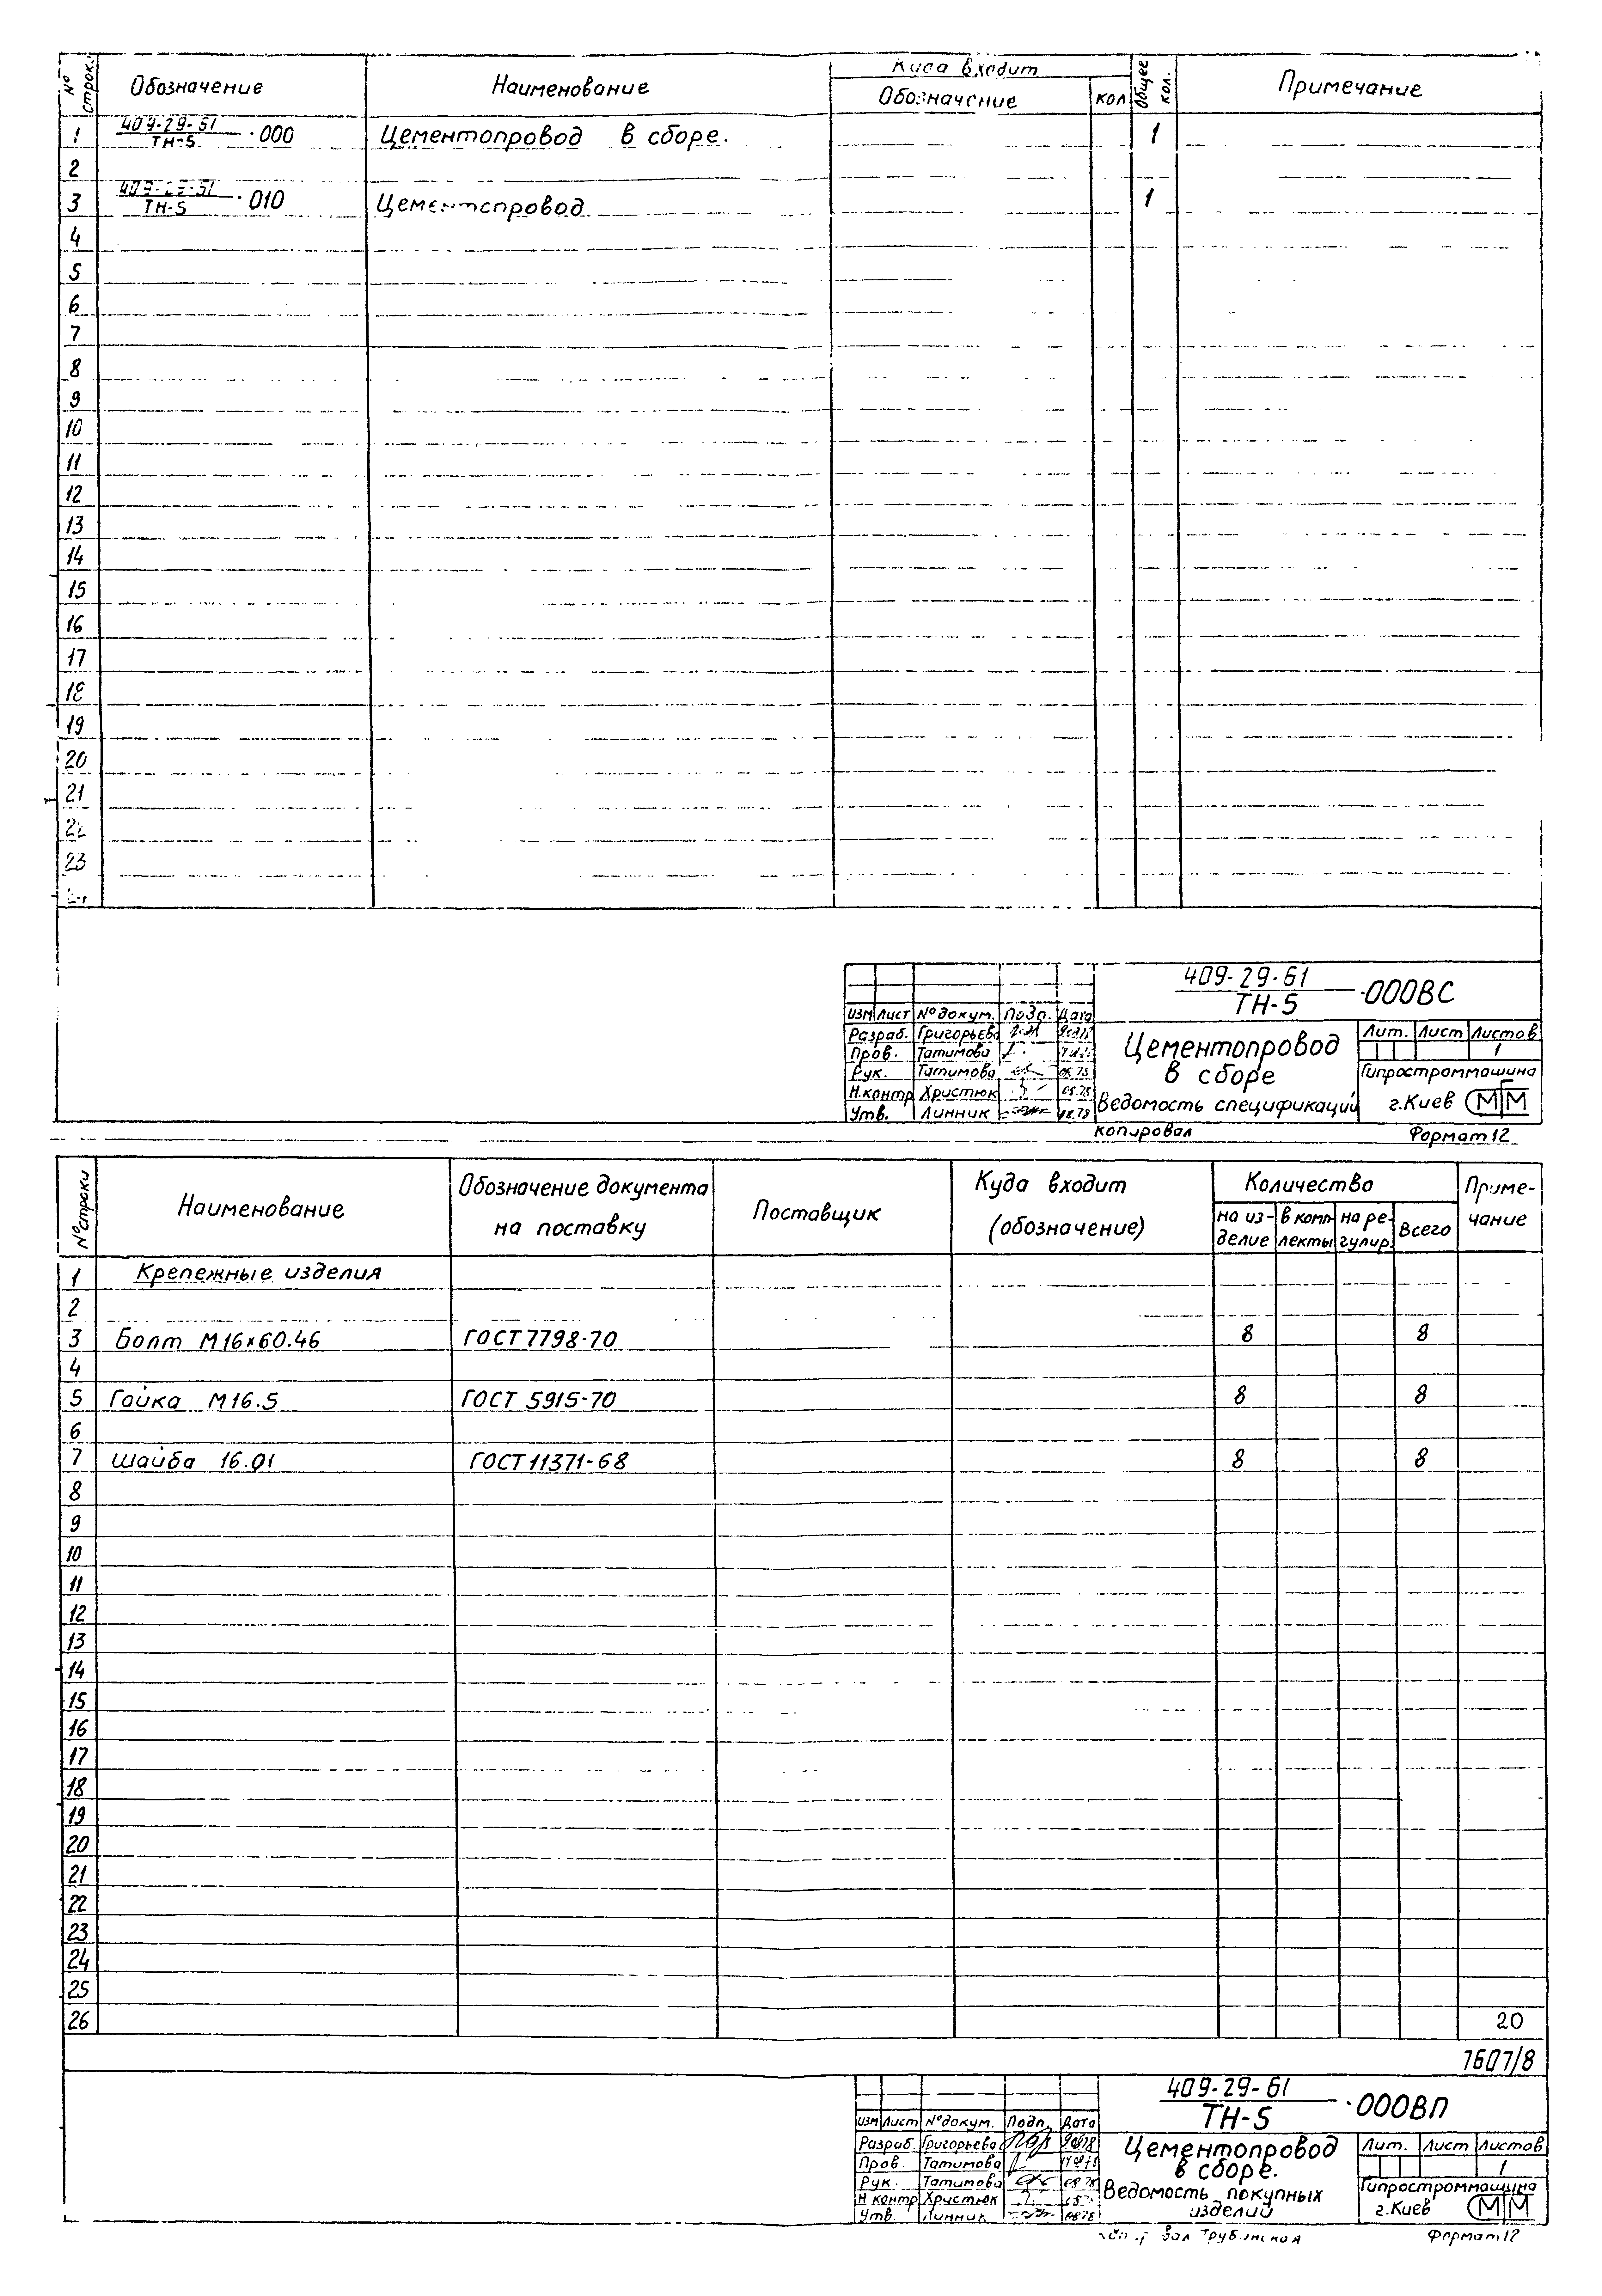 № строк. Обозначение Наименование Куда входит Общее кол. Примечание
Обозначение кол
1 409-29-61/ТН-5 ·000 Цементопровод в сборе. 1
2
3 409-29-61/ТН-5 ·010 Цементопровод 1
4
5
6
7
8
9
10
11
12
13
14
15
16
17
18
19
20
21
22
23
409-29-61/ТН-5 ·000ВС
Изм Лист № докум. Подп. Дата
Разраб. Григорьева
Пров. Татимова
Рук. Татимова
Н.контр Христюк
Утв. Линник
Цементопровод
в сборе
Ведомость спецификаций
Лит. Лист Листов
1
Гипростроммашина
г.Киев ММ
копировал Формат 12
№ строки Наименование Обозначение документа на поставку Поставщик Куда входит (обозначение) Количество Приме-чание
на из-делие в комп-лекты на ре-гулир. Всего
1 Крепежные изделия
2
3 Болт М16×60.46 ГОСТ 7798-70 8 8
4
5 Гайка М16.5 ГОСТ 5915-70 8 8
6
7 Шайба 16.01 ГОСТ 11371-68 8 8
8
9
10
11
12
13
14
15
16
17
18
19
20
21
22
23
24
25
26 20
7607/8
409-29-61/ТН-5 ·000ВП
Изм Лист № докум. Подп. Дата
Разраб. Григорьева
Пров. Татимова
Рук. Татимова
Н контр Христюк
Утв. Линник
Цементопровод
в сборе.
Ведомость покупных
изделий
Лит. Лист Листов
1
Гипростроммашина
г.Киев ММ
Формат 12